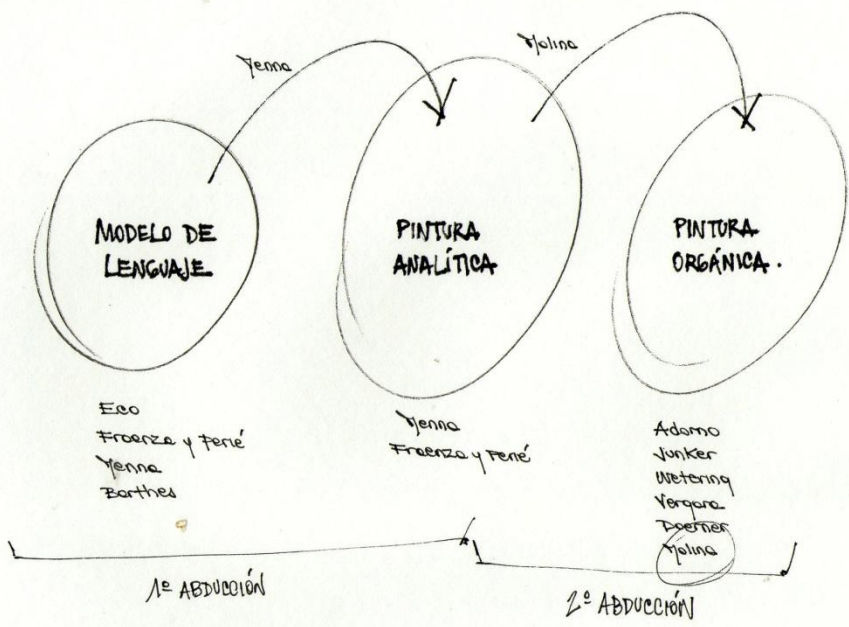 Menna
Molina
MODELO DE
LENGUAJE
PINTURA
ANALÍTICA
PINTURA
ORGÁNICA.
Eco
Fraenza y Perié
Menna
Barthes
Menna
Fraenza y Perié
Adorno
Junker
Wetering
Vergara
Doerner
Molina
1º ABDUCCIÓN
2º ABDUCCIÓN